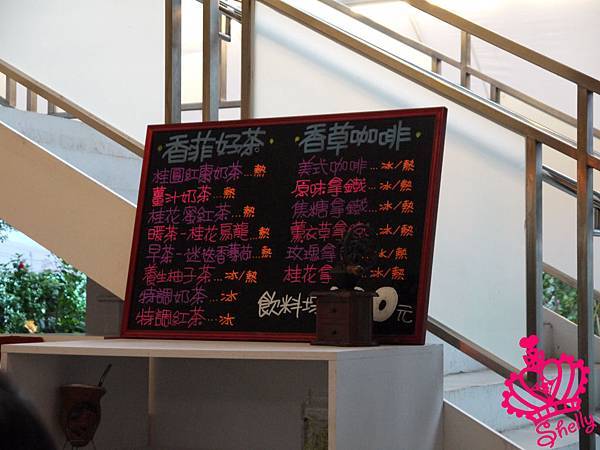 香菲好茶
桂圓紅棗奶茶...熱
薑汁奶茶...熱
桂花蜜紅茶...熱
暖茶-桂花烏龍...熱
早茶-迷迭香薄荷...熱
養生柚子茶...冰/熱
特調奶茶...冰
特調紅茶...冰
香草咖啡
美式咖啡...冰/熱
原味拿鐵...冰/熱
焦糖拿鐵...冰/熱
薰衣草拿 冰/熱
玫瑰拿 冰/熱
桂花拿 冰/熱
飲料均 0元
Shelly